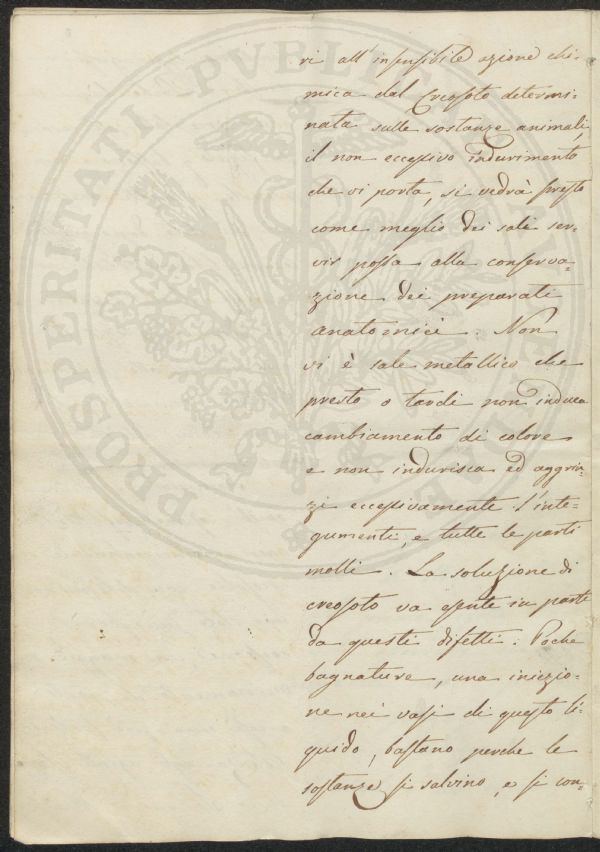 PROSPERITATI PVBLICAE
ri all'insensibile azione chi-
mica dal Creosoto determi-
nata sulle sostanze animali,
il non eccessivo indurimento
che vi porta, si vedrà presto
come meglio dei sali ser-
vir possa alla conserva-
zione dei preparati
anatomici. Non
vi è sale metallico che
presto o tardi non induca
cambiamento di colore
e non indurisca ed aggrin-
zi eccessivamente l'inte-
gumenti, e tutte le parti
molli. La soluzione di
creosoto va esente in parte
da questi difetti. Poche
bagnature, una iniezio-
ne nei vasi di questo li-
quido, bastano perche le
sostanze si salvino, e si con-